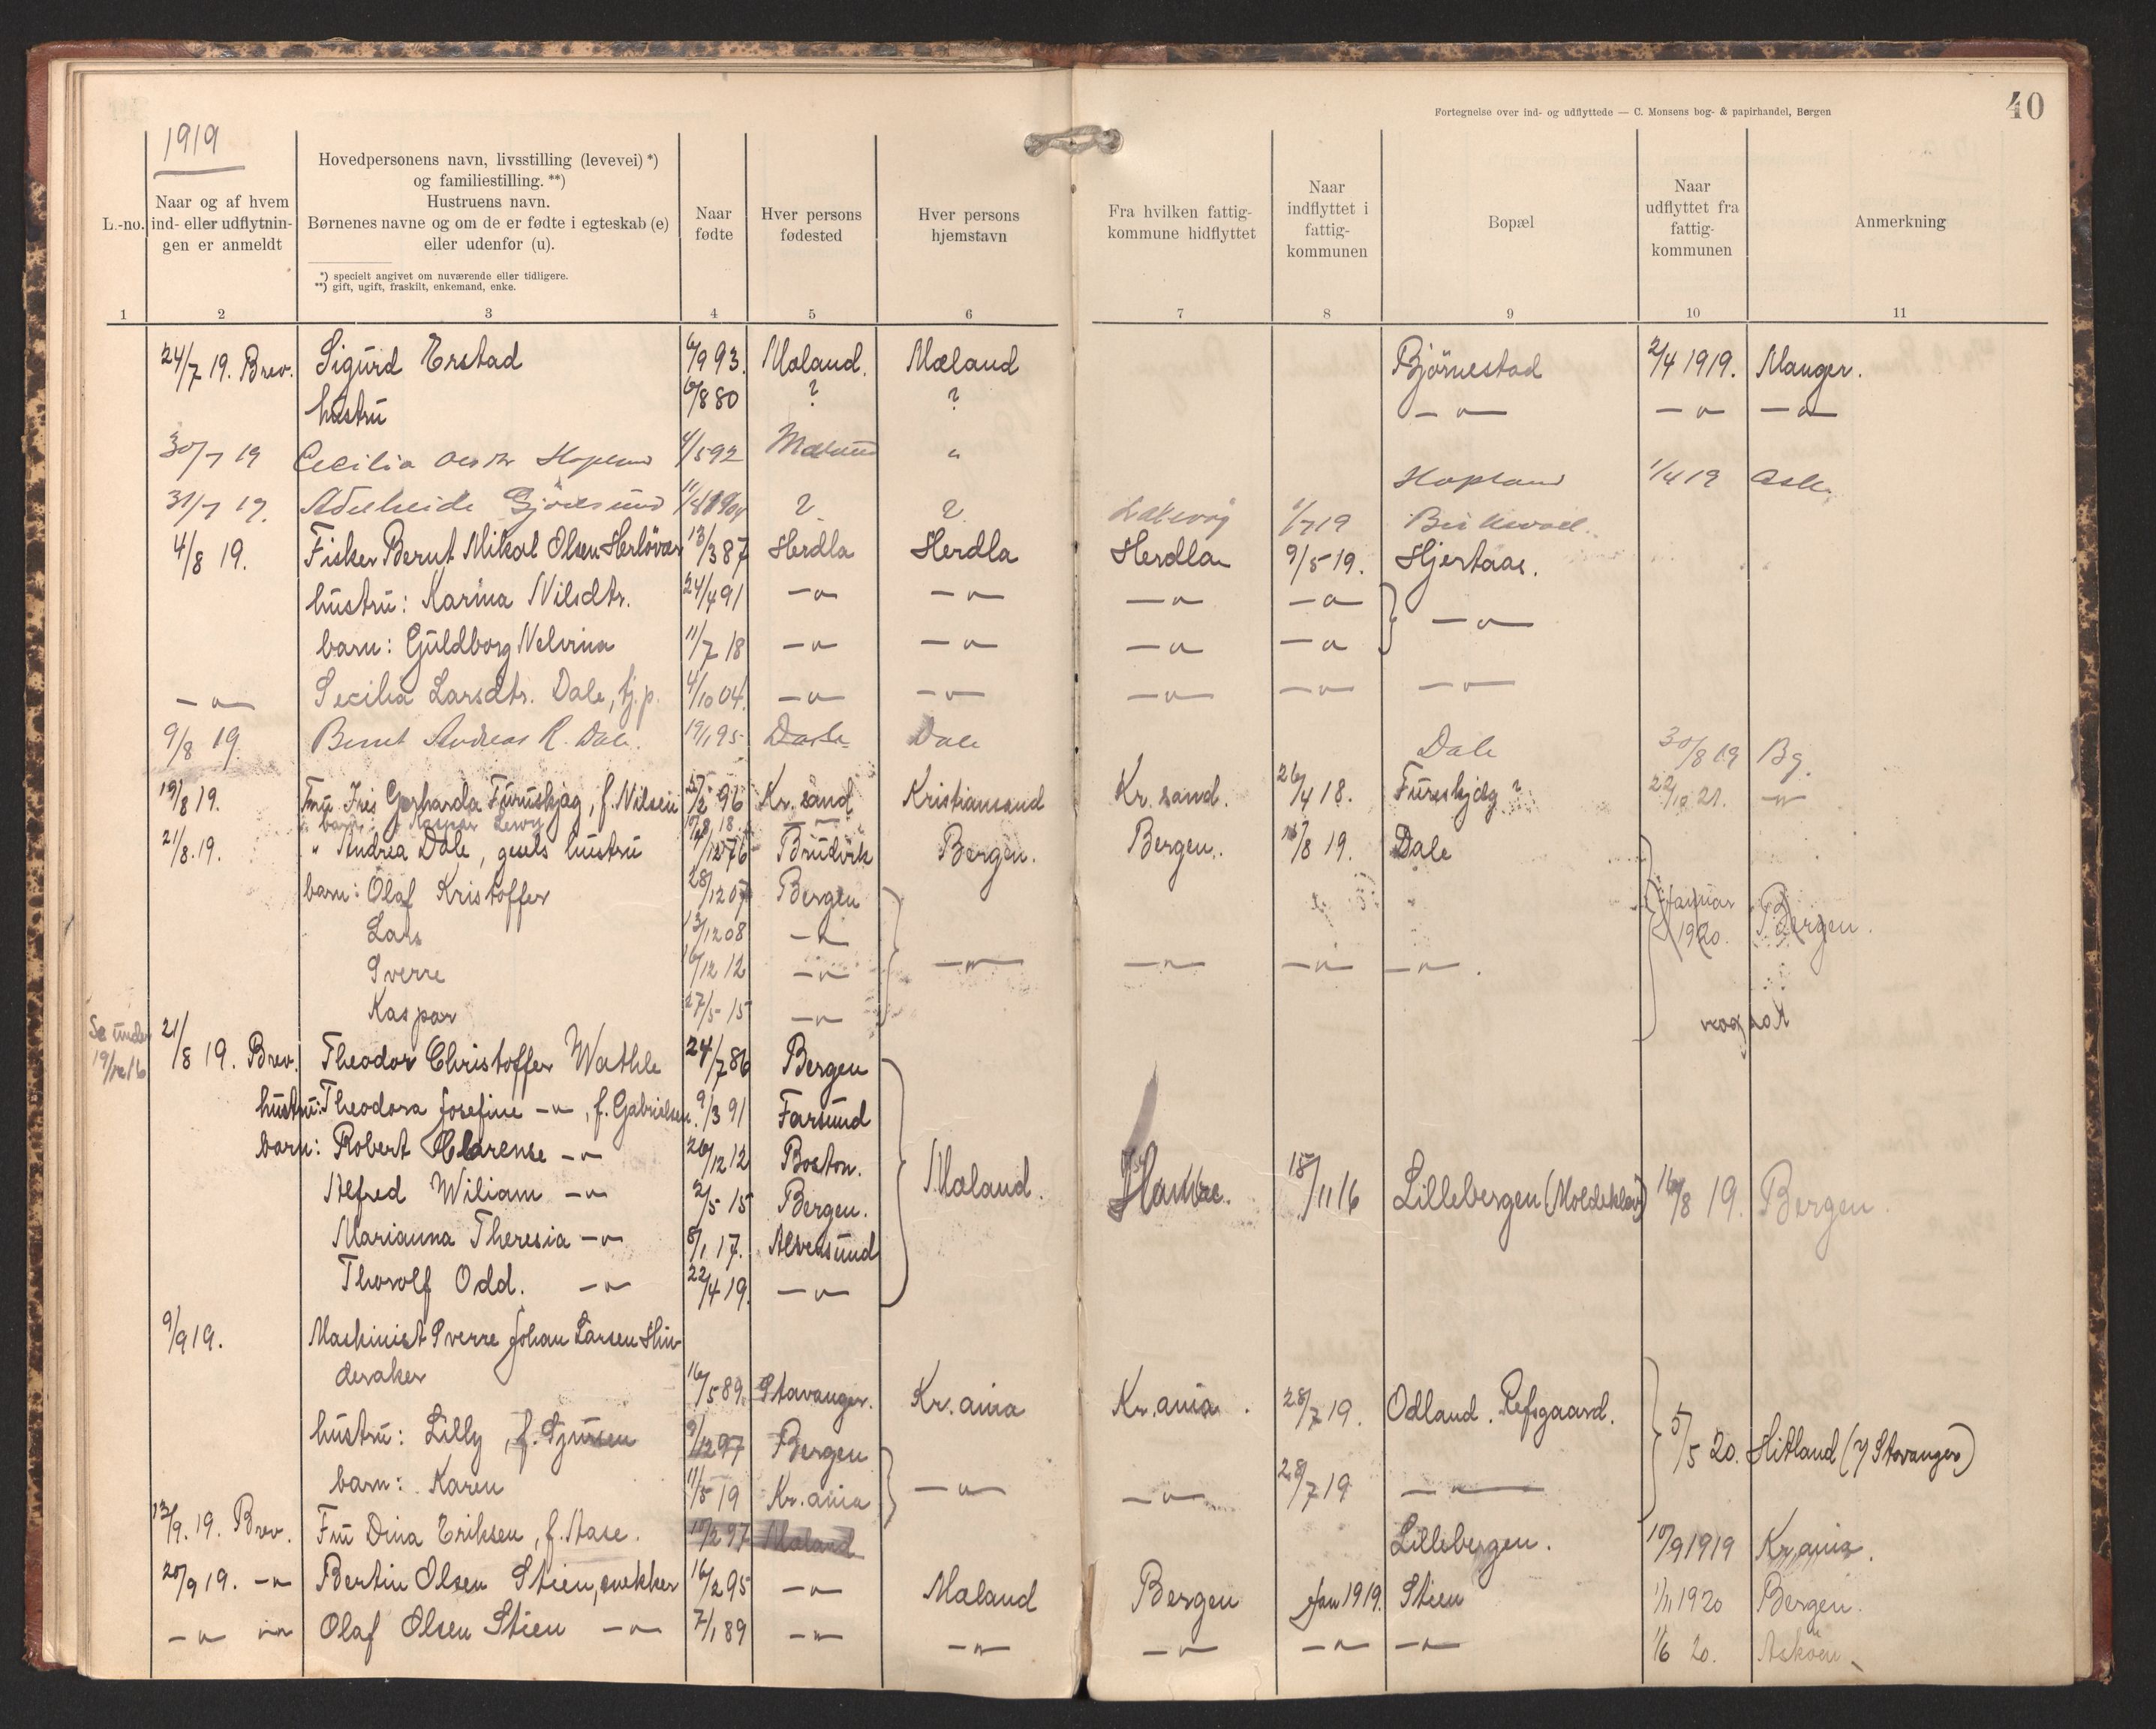 Fortegnelse over ind- og udflyttede — C. Monsens bog- & papirhandel, Bergen
40
1919
L.-no.
Naar og af hvem ind- eller udflytnin-gen er anmeldt
Hovedpersonens navn, livsstilling (levevei) *)
og familiestilling. **)
Hustruens navn.
Børnenes navne og om de er fødte i egteskab (e)
eller udenfor (u).
*) specielt angivet om nuværende eller tidligere.
**) gift, ugift, fraskilt, enkemand, enke.
Naar fødte
Hver persons fødested
Hver persons hjemstavn
Fra hvilken fattig-kommune hidflyttet
Naar indflyttet i fattig-kommunen
Bopæl
Naar udflyttet fra fattig-kommunen
Anmerkning
1 2 3 4 5 6 7 8 9 10 11
24/7 19. Brev. Sigurd Erstad 6/9 93. Mæland. Mæland Björnestad 2/4 1919. Manger.
hustru 6/8 80 ? ? — " — — " — — " —
30/7 19 Cecilia Hopland 4/5 92 Mæland " Hopland 1/4 19
31/7 19. ? ? 1/7 19
4/8 19. Fisker Bernt Mikal Olsen Herlövær 13/3 87 Herdla Herdla Herdla 9/5 19. Hjertaas.
hustru: Karina Nilsdtr. 24/4 91 — " — — " — — " — — " — — " —
barn: Guldborg Nelvina 11/7 18 — " — — " — — " — — " —
— " — Secilia Larsdtr. Dale, tj.p. 4/10 04. — " — — " — — " — — " — — " —
9/8 19 Bernt Andreas R. Dale. 19/1 95 Dale Dale Dale 30/8 19 Bg.
19/8 19. Fru Iris Gerharda Furuskjæg, f. Nilsen 25/2 96 Kr.sand Kristiansand Kr.sand. 26/4 18. Fureskjæg ? 22/12 21. — " —
barn: Kaspar
21/8. 19. " Andrea Dale, gesels hustru 4/12 76 Brudvik Bergen. Bergen. 16/8 19. Dale
barn: Olaf Kristoffer 28/12 07 Bergen Januar 1920. Bergen.
Lars 13/12 08 — " —
Sverre 16/12 12 — " — — " — — " — — " — — " —
Kaspar 27/5 15 — " —
Se under 19/12 16
21/8 19. Brev. Theodor Christoffer Wathle 24/7 86 Bergen
hustru: Theodora Josefine — " —, f. Gabrielsen. 9/3 91 Farsund
barn: Robert Clarense — " — 26/12 12 Boston.
Alfred Wiliam — " — 2/5 15 Bergen. Mæland. Hamre. 15/11 16 Lillebergen (Moldeklev) 16/8 19. Bergen.
Marianna Theresia — " — 8/1 17. Alversund
Thorolf Odd. — " — 22/4 19. — " —
9/9 19. Maskinist Sverre Johan Larsen Hin-
deraker 16/5 89. Stavanger. Kr.ania Kr.ania. 28/7 19. Odland. Refsgaard.
hustru: Lilly, f. Sjursen 9/12 97 Bergen 5/5 20. Hitland (/ Stavanger)
barn: Karen 11/5 19 Kr.ania — " — — " — 28/7 19 — " —
13/9. 19. Brev. Fru Dina Eriksen, f. Aase. 10/2 97 Mæland Lillebergen. 10/9 1919 Kr.ania.
20/9 19. — " — Bertin Olsen Stien, snekker 16/2 95 — " — Mæland Bergen Jan 1919. Stien 1/11 1920 Bergen.
— " — — " — Olaf Olsen Stien — " — 7/1 89 — " — — " — — " — — " — — " — 1/6 20. Asköen